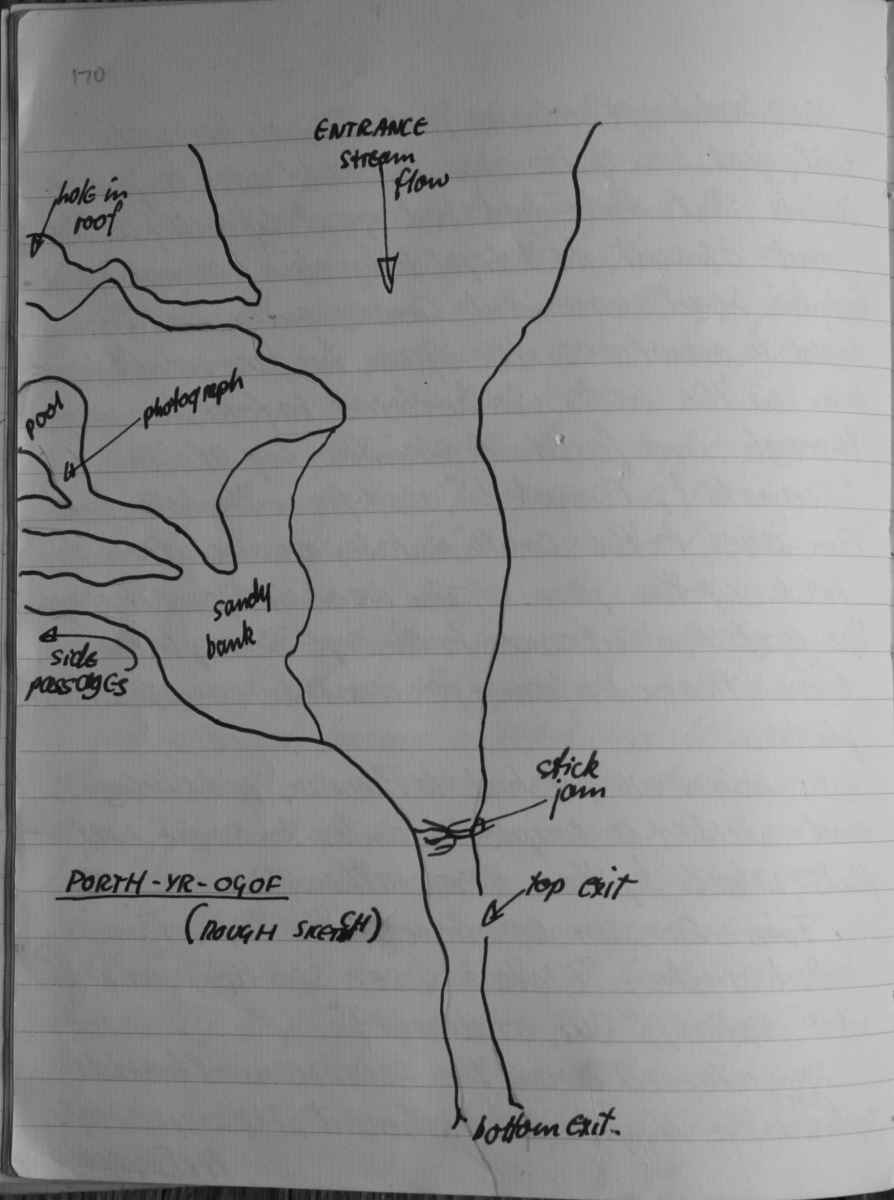 170
ENTRANCE
stream
flow
hole in
roof
pool
photograph
sandy
bank
side
passages
stick
jam
top exit
PORTH-YR-OGOF
(ROUGH SKETCH)
bottom exit.